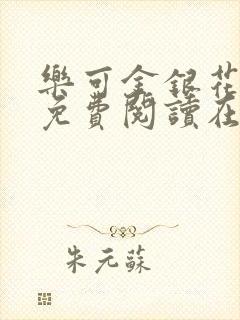 樂可金銀花
免費閱讀在
朱元蘇